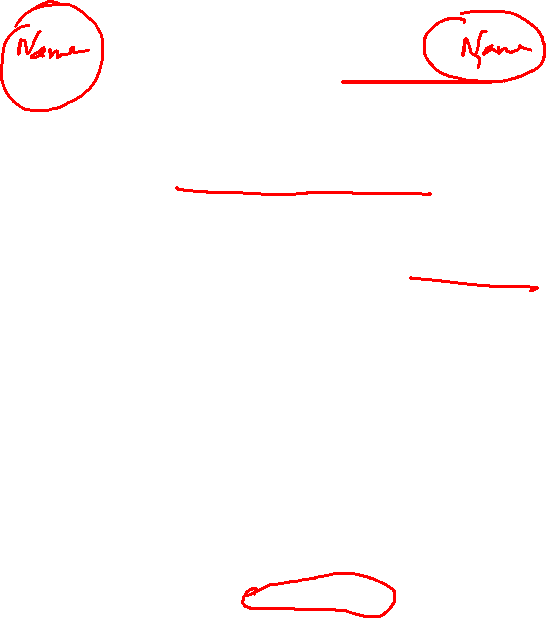 Name
Name